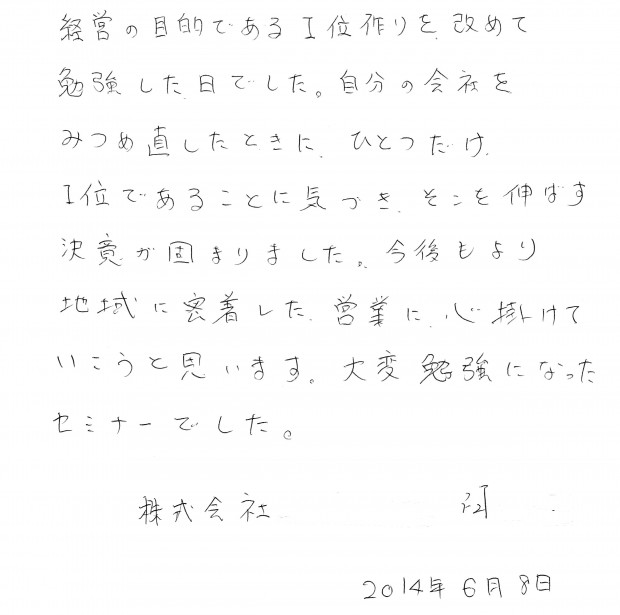 経営の目的であるI位作りを改めて
勉強した日でした。自分の会社を
みつめ直したときに、ひとつだけ、
I位であることに気づき、そこを伸ばす
決意が固まりました。今後もより
地域に密着した営業に、心掛けて
いこうと思います。大変勉強になった
セミナーでした。
株式会社
2014年6月8日